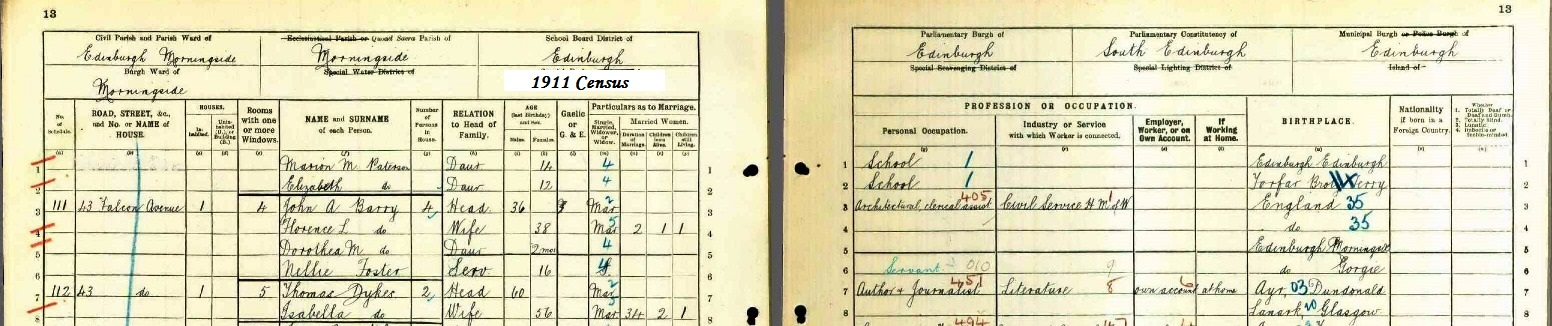 13
Civil Parish and Parish Ward of
Edinburgh Morningside
Burgh Ward of
Morningside
Ecclesiastical Parish or Quoad Sacra Parish of
Morningside
Special Water District of
School Board District of
Edinburgh
1911 Census
No. of Schedule.
ROAD, STREET, &c., and No. or NAME of HOUSE.
HOUSES.
Inhabited.
Uninhabited (U.) or Building (B.)
Rooms with one or more Windows.
NAME and SURNAME of each Person.
Number of Persons in House.
RELATION to Head of Family.
AGE (last Birthday) and Sex.
Males.
Females.
Gaelic or G. & E.
Particulars as to Marriage.
Single, Married, Widower, or Widow.
Married Women.
Duration of Marriage.
Children born Alive.
Children still Living.
1 Marion M. Paterson Daur 14 4 1
2 Elizabeth do Daur 12 4 2
3 111 43 Falcon Avenue 1 4 John A Barry 4 Head 36 Mar 2 3
4 Florence L. do Wife 38 Mar 5 2 1 1 4
5 Dorothea M. do Daur 2 mos 4 5
6 Nellie Foster Serv 16 S. 6
7 112 43 do 1 5 Thomas Dykes 2 Head 60 Mar 2 7
8 Isabella do Wife 56 Mar 34 2 1 8
13
Parliamentary Burgh of
Edinburgh
Special Scavenging District of
Parliamentary Constituency of
South Edinburgh
Special Lighting District of
Municipal Burgh or Police Burgh of
Edinburgh
Island of
PROFESSION OR OCCUPATION.
Personal Occupation.
Industry or Service with which Worker is connected.
Employer, Worker, or on Own Account.
If Working at Home.
BIRTHPLACE.
Nationality if born in a Foreign Country.
Whether
1. Totally Deaf or Deaf and Dumb.
2. Totally Blind.
3. Lunatic.
4. Imbecile or Feeble-minded.
1 School 1 Edinburgh Edinburgh 1
2 School 1 Forfar 2
3 Architectural clerical assist 405 Civil Service H. M. of W 1 England 35 3
4 do 35 4
5 Edinburgh Morningside 5
6 Servant 010 9 do Gorgie 6
7 Author & Journalist 451 Literature 8 own account 6 at home Ayr, 03 Dundonald 7
8 Lanark, 20 Glasgow 8
494